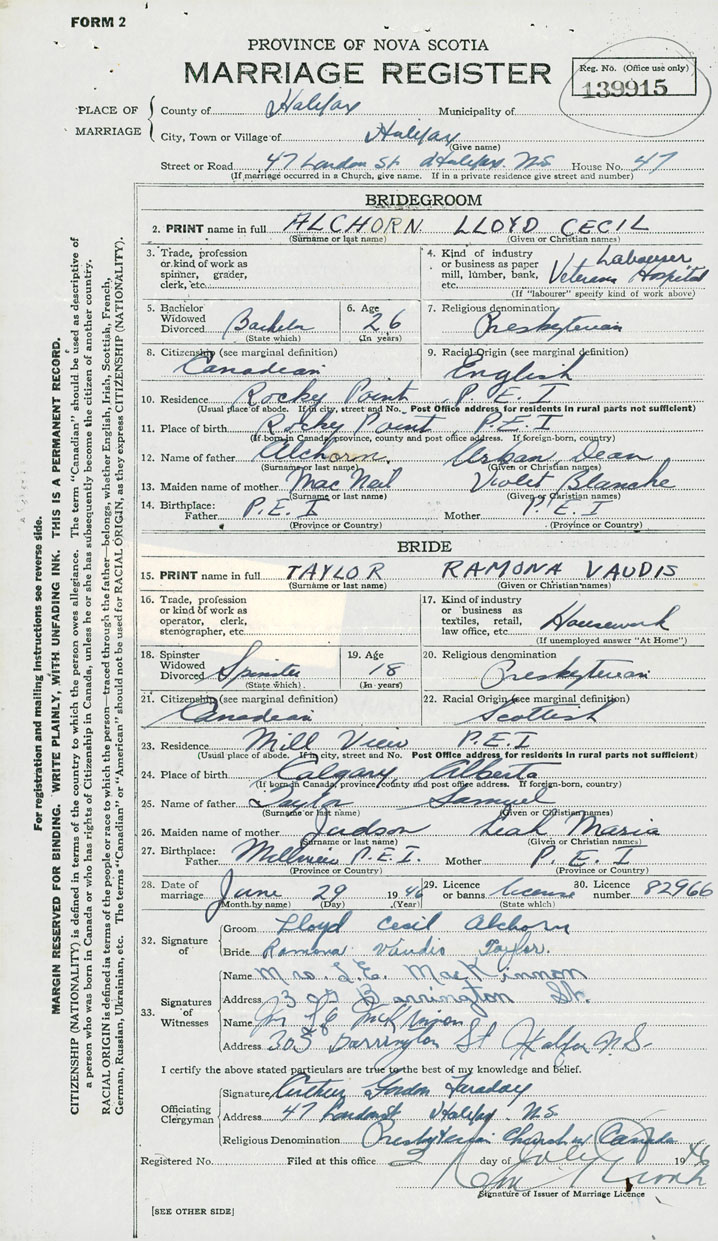 FORM 2
PROVINCE OF NOVA SCOTIA
MARRIAGE REGISTER
Reg. No. (Office use only)
139915
PLACE OF MARRIAGE
County of Halifax Municipality of
City, Town or Village of Halifax
(Give name)
Street or Road 47 London St Halifax. N.S House No. 47
(If marriage occurred in a Church, give name. If in a private residence give street and number)
BRIDEGROOM
2. PRINT name in full ALCHORN. LLOYD CECIL
(Surname or last name) (Given or Christian names)
3. Trade, profession or kind of work as spinner, grader, clerk, etc.
4. Kind of industry or business as paper mill, lumber, bank, etc. Labourer Veterans Hospital
(If "labourer" specify kind of work above)
5. Bachelor Widowed Divorced Bachelor (State which)
6. Age 26 (In years)
7. Religious denomination Presbyterian
8. Citizenship (see marginal definition) Canadian
9. Racial Origin (see marginal definition) English
10. Residence Rocky Point P.E.I
(Usual place of abode. If in city, street and No. Post Office address for residents in rural parts not sufficient)
11. Place of birth Rocky Point P.E.I
(If born in Canada, province, county and post office address. If foreign-born, country)
12. Name of father Alchorn. Urban Dean
(Surname or last name) (Given or Christian names)
13. Maiden name of mother MacNeil Violet Blanche
(Surname or last name) (Given or Christian names)
14. Birthplace: Father P.E.I Mother P.E.I
(Province or Country) (Province or Country)
BRIDE
15. PRINT name in full TAYLOR RAMONA VAUDIS
(Surname or last name) (Given or Christian names)
16. Trade, profession or kind of work as operator, clerk, stenographer, etc.
17. Kind of industry or business as textiles, retail, law office, etc. Housework
(If unemployed answer "At Home")
18. Spinster Widowed Divorced Spinster (State which)
19. Age 18 (In years)
20. Religious denomination Presbyterian
21. Citizenship (see marginal definition) Canadian
22. Racial Origin (see marginal definition) Scottish
23. Residence Mill View P.E.I
(Usual place of abode. If in city, street and No. Post Office address for residents in rural parts not sufficient)
24. Place of birth Calgary, Alberta
(If born in Canada, province, county and post office address. If foreign-born, country)
25. Name of father Taylor Samuel
(Surname or last name) (Given or Christian names)
26. Maiden name of mother Judson Leah Maria
(Surname or last name) (Given or Christian names)
27. Birthplace: Father Millview P.E.I. Mother P.E.I
(Province or Country) (Province or Country)
28. Date of marriage June 29 1946
(Month by name) (Day) (Year)
29. Licence or banns license (State which)
30. Licence number 82966
32. Signature of
Groom Lloyd Cecil Alchorn
Bride Ramona Vaudis Taylor.
33. Signatures of Witnesses
Name Mrs. L.E. MacKinnon
Address 305 Barrington St.
Name
Address 305 Barrington St Halifax N.S.
I certify the above stated particulars are true to the best of my knowledge and belief.
Officiating Clergyman
Signature Arthur Gordon Faraday
Address 47 London St Halifax. N.S
Religious Denomination Presbyterian Church in Canada
Registered No. Filed at this office 2 day of July 1946
Signature of Issuer of Marriage Licence
[SEE OTHER SIDE]
For registration and mailing instructions see reverse side.
MARGIN RESERVED FOR BINDING. WRITE PLAINLY, WITH UNFADING INK. THIS IS A PERMANENT RECORD.
CITIZENSHIP (NATIONALITY) is defined in terms of the country to which the person owes allegiance. The term "Canadian" should be used as descriptive of
a person who was born in Canada or who has rights of Citizenship in Canada, unless he or she has subsequently become the citizen of another country.
RACIAL ORIGIN is defined in terms of the people or race to which the person—traced through the father—belongs, whether English, Irish, Scottish, French,
German, Russian, Ukrainian, etc. The terms "Canadian" or "American" should not be used for RACIAL ORIGIN, as they express CITIZENSHIP (NATIONALITY).